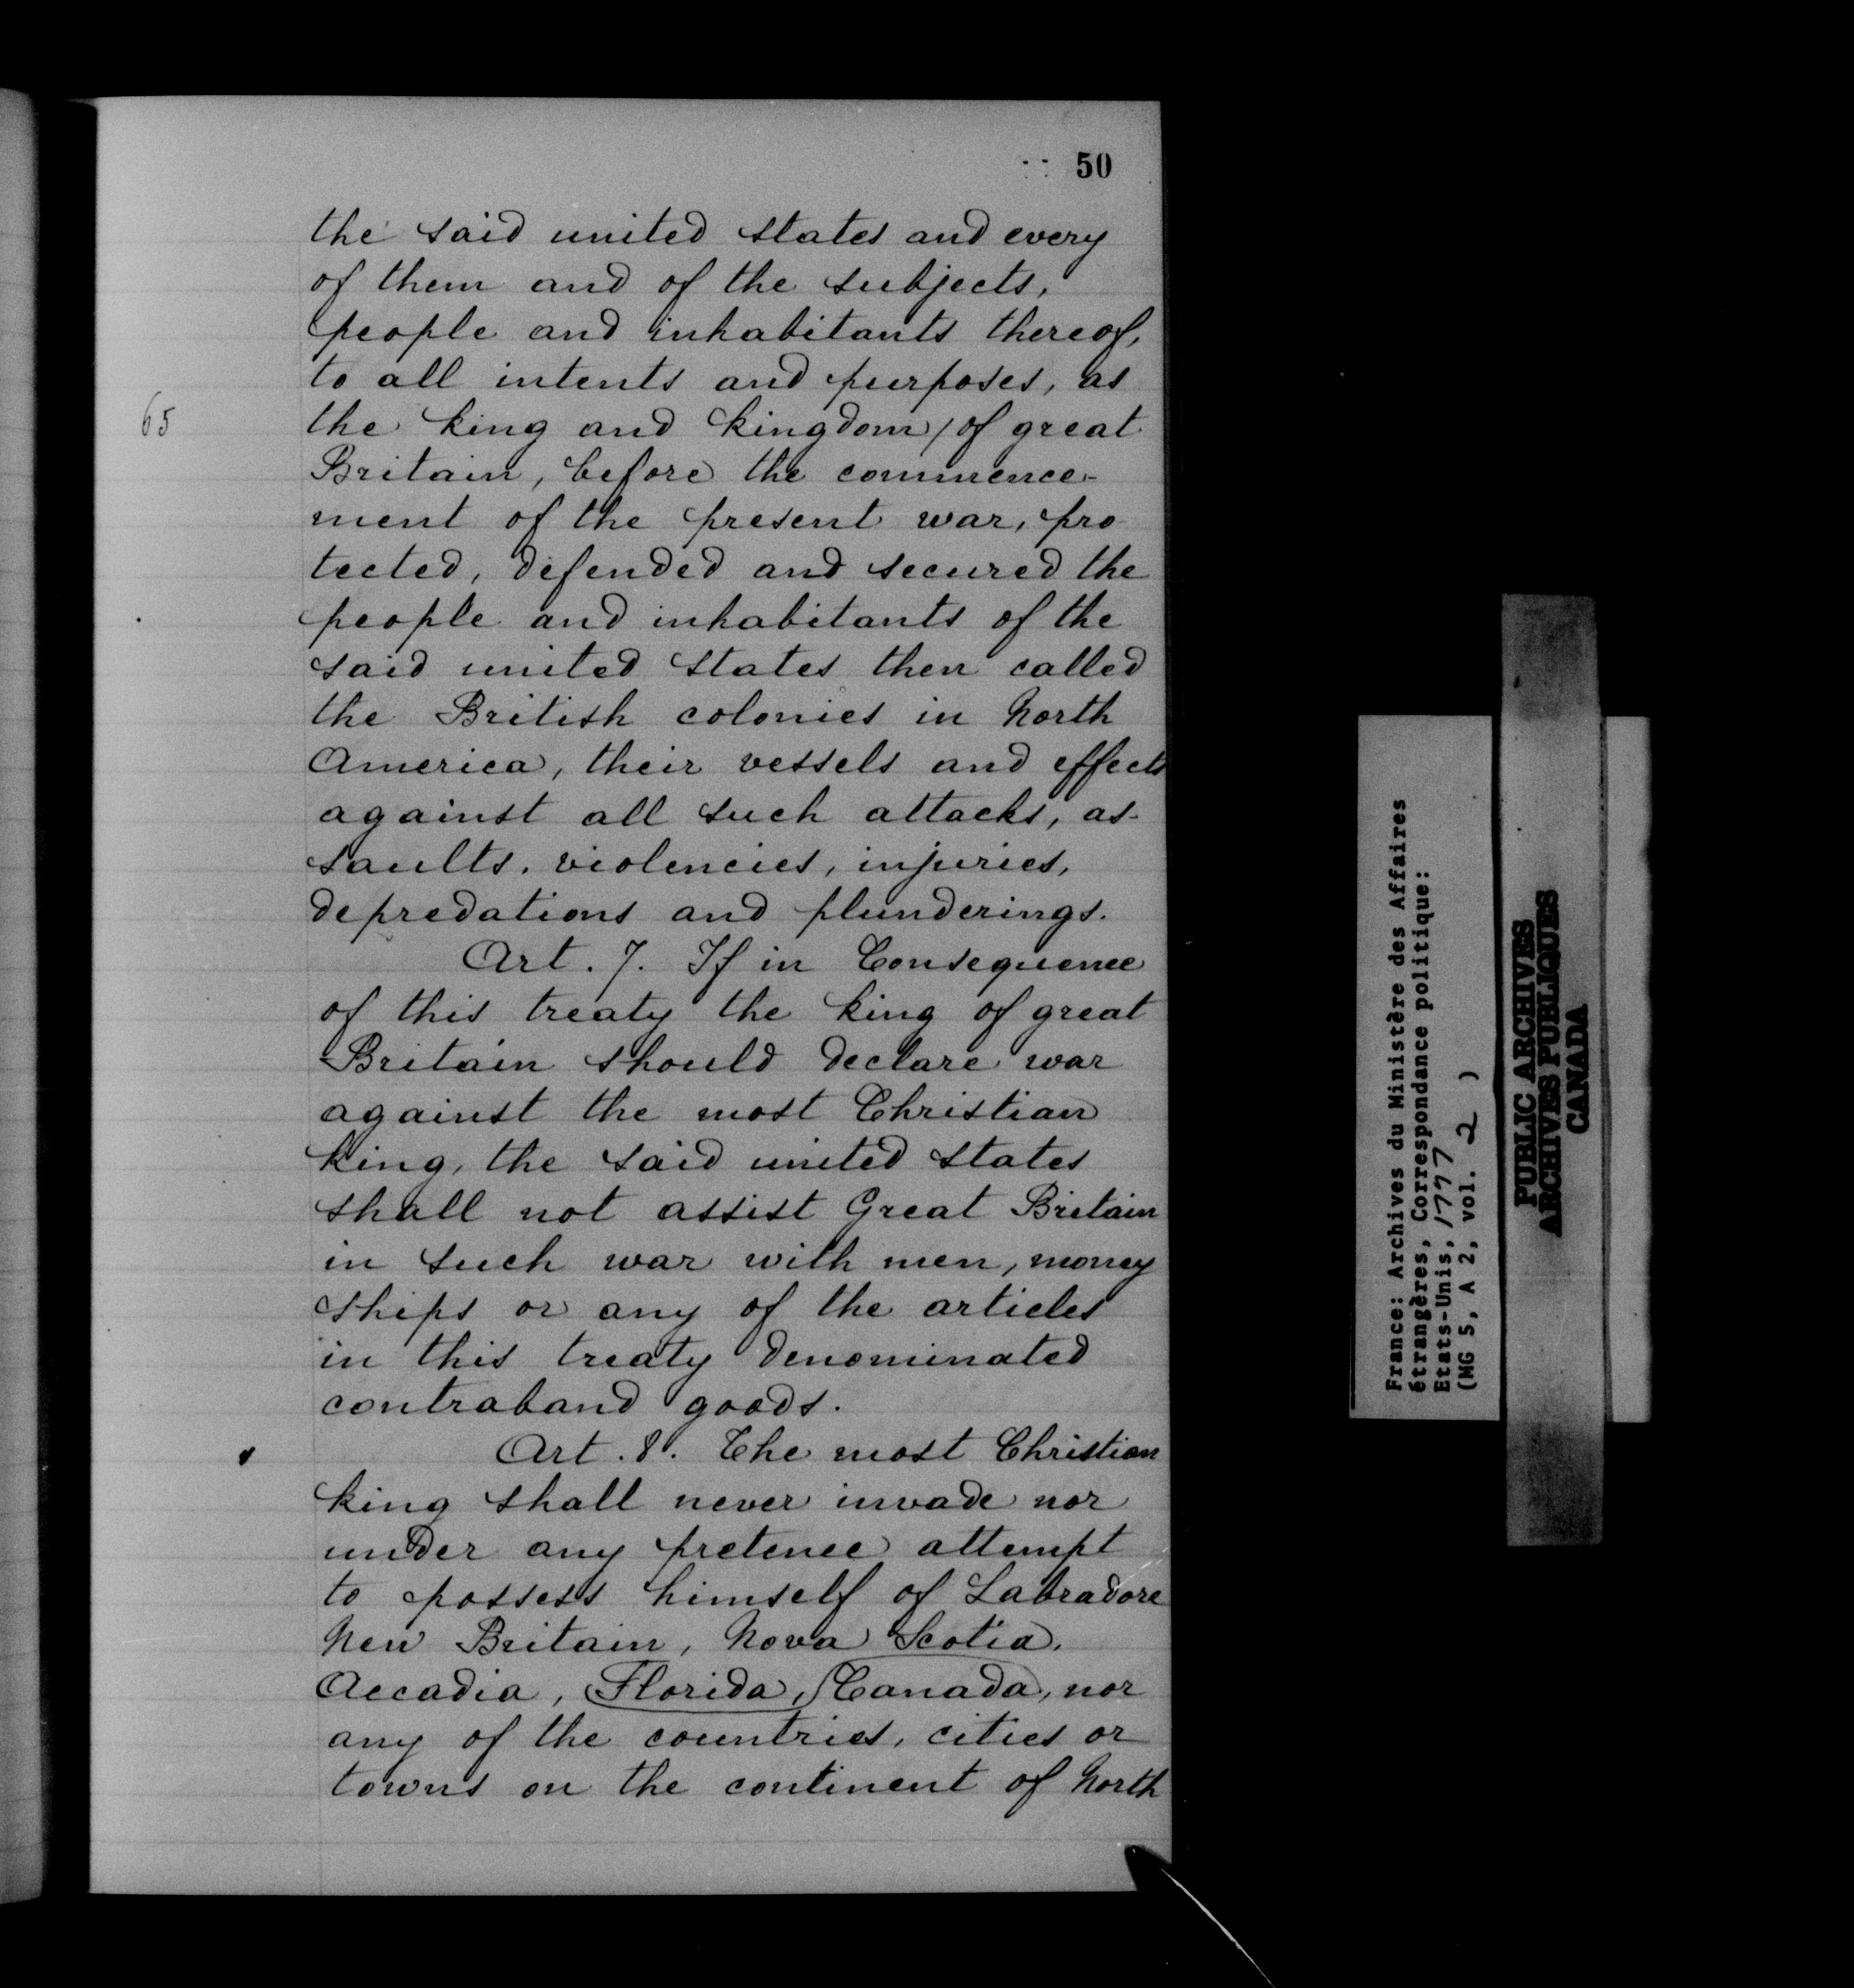 50
the said united states and every
of them and of the subjects,
people and inhabitants thereof,
to all intents and purposes, as
65
the king and kingdom / of great
Britain, before the commence-
ment of the present war, pro
tected, defended and secured the
people and inhabitants of the
said united states then called
the British colonies in North
America, their vessels and effects
against all such attacks, as-
saults, violencies, injuries,
depredations and plunderings.
Art. 7. If in Consequence
of this treaty the king of great
Britain should declare war
against the most Christian
king, the said united states
shall not assist Great Britain
in such war with men, money
ships or any of the articles
in this treaty denominated
contraband goods.
Art. 8. The most Christian
king shall never invade nor
under any pretence attempt
to possess himself of Labradore
New Britain, Nova Scotia,
Accadia, Florida, Canada, nor
any of the countries, cities or
towns on the continent of North
France: Archives du Ministère des Affaires
étrangères, Correspondance politique:
Etats-Unis, 1777
(MG 5, A 2, vol. 2 )
PUBLIC ARCHIVES
ARCHIVES PUBLIQUES
CANADA